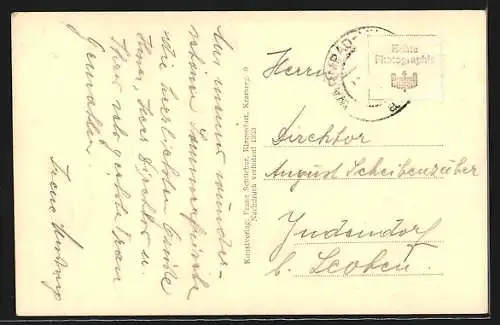 Aus meiner wunder-
schönen Sommerfrische
die herzlichsten Grüße
Ihnen, Herr Direktor u.
Ihrer sehr geehrten Frau
Gemahlin.
Irene
Kunstverlag, Franz Schilcher, Klagenfurt,
Nachdruck verboten! 1933
WARMBAD-
Echte
Photographie
Herrn
Direktor
August Scheikenzuber
Judendorf
b. Leoben.